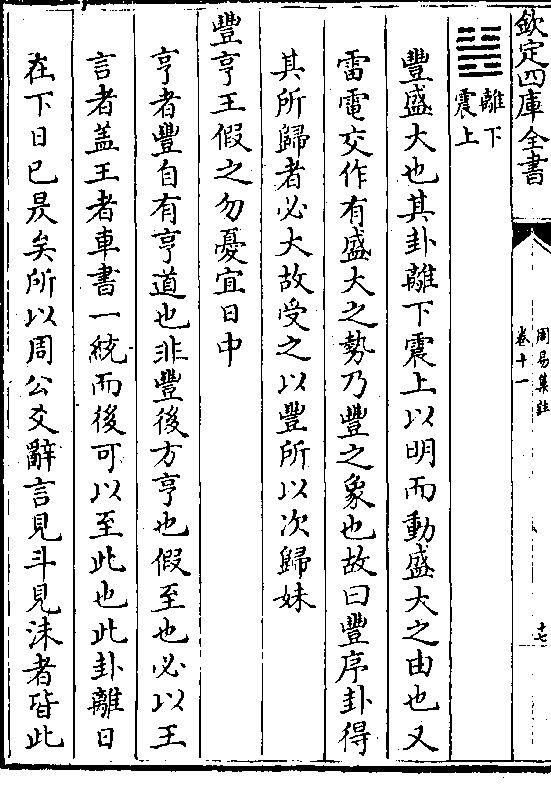 欽定四庫全書
周易集註
卷十一
十七
離下
震上
豐盛大也其卦離下震上以明而動盛大之由也又
雷電交作有盛大之勢乃豐之象也故曰豐序卦得
其所歸者必大故受之以豐所以次歸妹
豐亨王假之勿憂宜日中
亨者豐自有亨道也非豐後方亨也假至也必以王
言者蓋王者車書一統而後可以至此也此卦離日
在下日已昃矣所以周公爻辭言見斗見沬者皆此